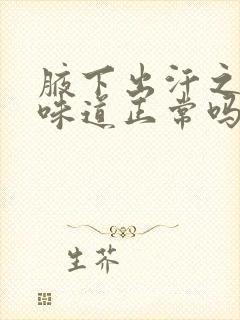 腋下出汗之
味道正常吗
生芥